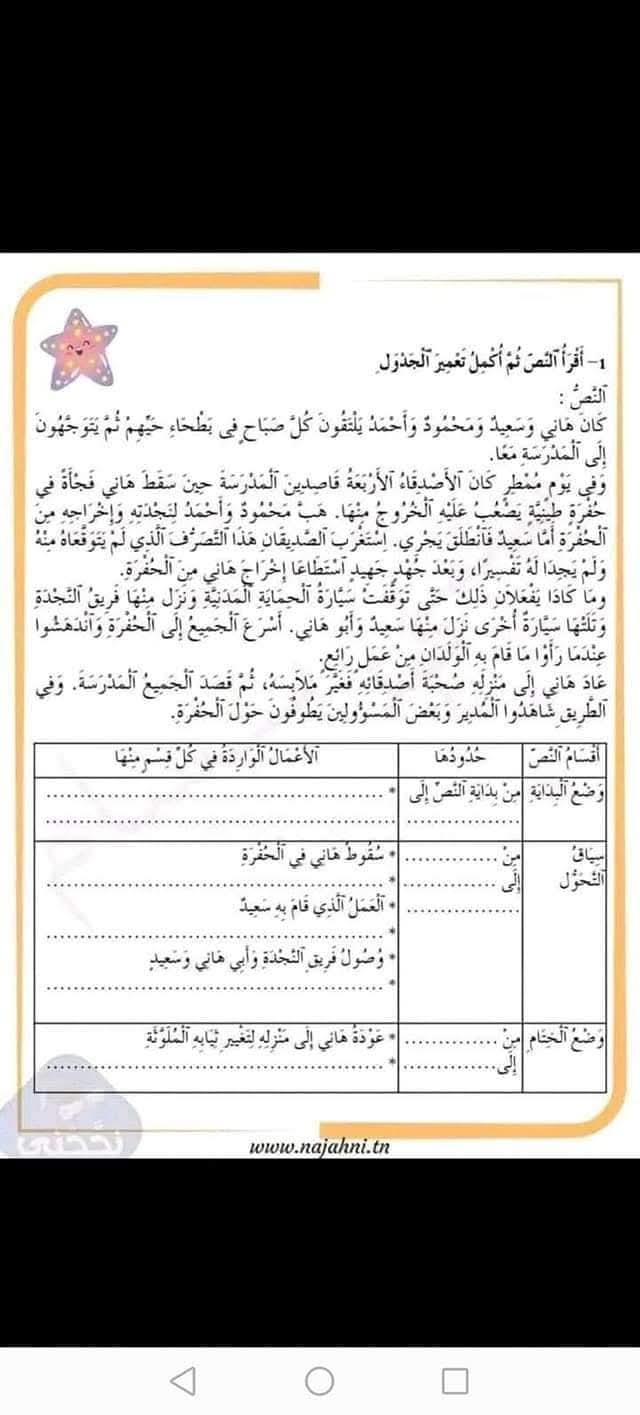 1- أَقْرَأُ ٱلنَّصَّ ثُمَّ أُكْمِلُ تَعْمِيرَ ٱلْجَدْوَلِ
ٱلنَّصُّ :
كَانَ هَانِي وَسَعِيدٌ وَمَحْمُودٌ وَأَحْمَدُ يَلْتَقُونَ كُلَّ صَبَاحٍ فِي بَطْحَاءِ حَيِّهِمْ ثُمَّ يَتَوَجَّهُونَ
إِلَى ٱلْمَدْرَسَةِ مَعًا.
وَفِي يَوْمٍ مُمْطِرٍ كَانَ ٱلْأَصْدِقَاءُ ٱلْأَرْبَعَةُ قَاصِدِينَ ٱلْمَدْرَسَةَ حِينَ سَقَطَ هَانِي فَجْأَةً فِي
حُفْرَةٍ طِينِيَّةٍ يَصْعُبُ عَلَيْهِ ٱلْخُرُوجُ مِنْهَا. هَبَّ مَحْمُودٌ وَأَحْمَدُ لِنَجْدَتِهِ وَإِخْرَاجِهِ مِنَ
ٱلْحُفْرَةِ أَمَّا سَعِيدٌ فَٱنْطَلَقَ يَجْرِي. اِسْتَغْرَبَ ٱلصَّدِيقَانِ هَذَا ٱلتَّصَرُّفَ ٱلَّذِي لَمْ يَتَوَقَّعَاهُ مِنْهُ
وَلَمْ يَجِدَا لَهُ تَفْسِيرًا، وَبَعْدَ جُهْدٍ جَهِيدٍ ٱسْتَطَاعَا إِخْرَاجَ هَانِي مِنَ ٱلْحُفْرَةِ.
وَمَا كَادَا يَفْعَلَانِ ذَلِكَ حَتَّى تَوَقَّفَتْ سَيَّارَةُ ٱلْحِمَايَةِ ٱلْمَدَنِيَّةِ وَنَزَلَ مِنْهَا فَرِيقُ ٱلنَّجْدَةِ
وَتَلَتْهَا سَيَّارَةٌ أُخْرَى نَزَلَ مِنْهَا سَعِيدٌ وَأَبُو هَانِي. أَسْرَعَ ٱلْجَمِيعُ إِلَى ٱلْحُفْرَةِ وَٱنْدَهَشُوا
عِنْدَمَا رَأَوْا مَا قَامَ بِهِ ٱلْوَلَدَانِ مِنْ عَمَلٍ رَائِعٍ.
عَادَ هَانِي إِلَى مَنْزِلِهِ صُحْبَةَ أَصْدِقَائِهِ فَغَيَّرَ مَلَابِسَهُ، ثُمَّ قَصَدَ ٱلْجَمِيعُ ٱلْمَدْرَسَةَ. وَفِي
ٱلطَّرِيقِ شَاهَدُوا ٱلْمُدِيرَ وَبَعْضَ ٱلْمَسْؤُولِينَ يَطُوفُونَ حَوْلَ ٱلْحُفْرَةِ.
أَقْسَامُ ٱلنَّصِّ حُدُودُهَا ٱلْأَعْمَالُ ٱلْوَارِدَةُ فِي كُلِّ قِسْمٍ مِنْهَا
وَضْعُ ٱلْبِدَايَةِ مِنْ بِدَايَةِ ٱلنَّصِّ إِلَى ................ * ................
................
سِيَاقُ مِنْ ................ * سُقُوطُ هَانِي فِي ٱلْحُفْرَةِ
ٱلتَّحَوُّلِ إِلَى ................ * ................
................ * ٱلْعَمَلُ ٱلَّذِي قَامَ بِهِ سَعِيدٌ
* ................
* وُصُولُ فَرِيقِ ٱلنَّجْدَةِ وَأَبِي هَانِي وَسَعِيدٍ
* ................
وَضْعُ ٱلْخِتَامِ مِنْ ................ * عَوْدَةُ هَانِي إِلَى مَنْزِلِهِ لِتَغْيِيرِ ثِيَابِهِ ٱلْمُلَوَّثَةِ
إِلَى ................ * ................
نجّحني
www.najahni.tn